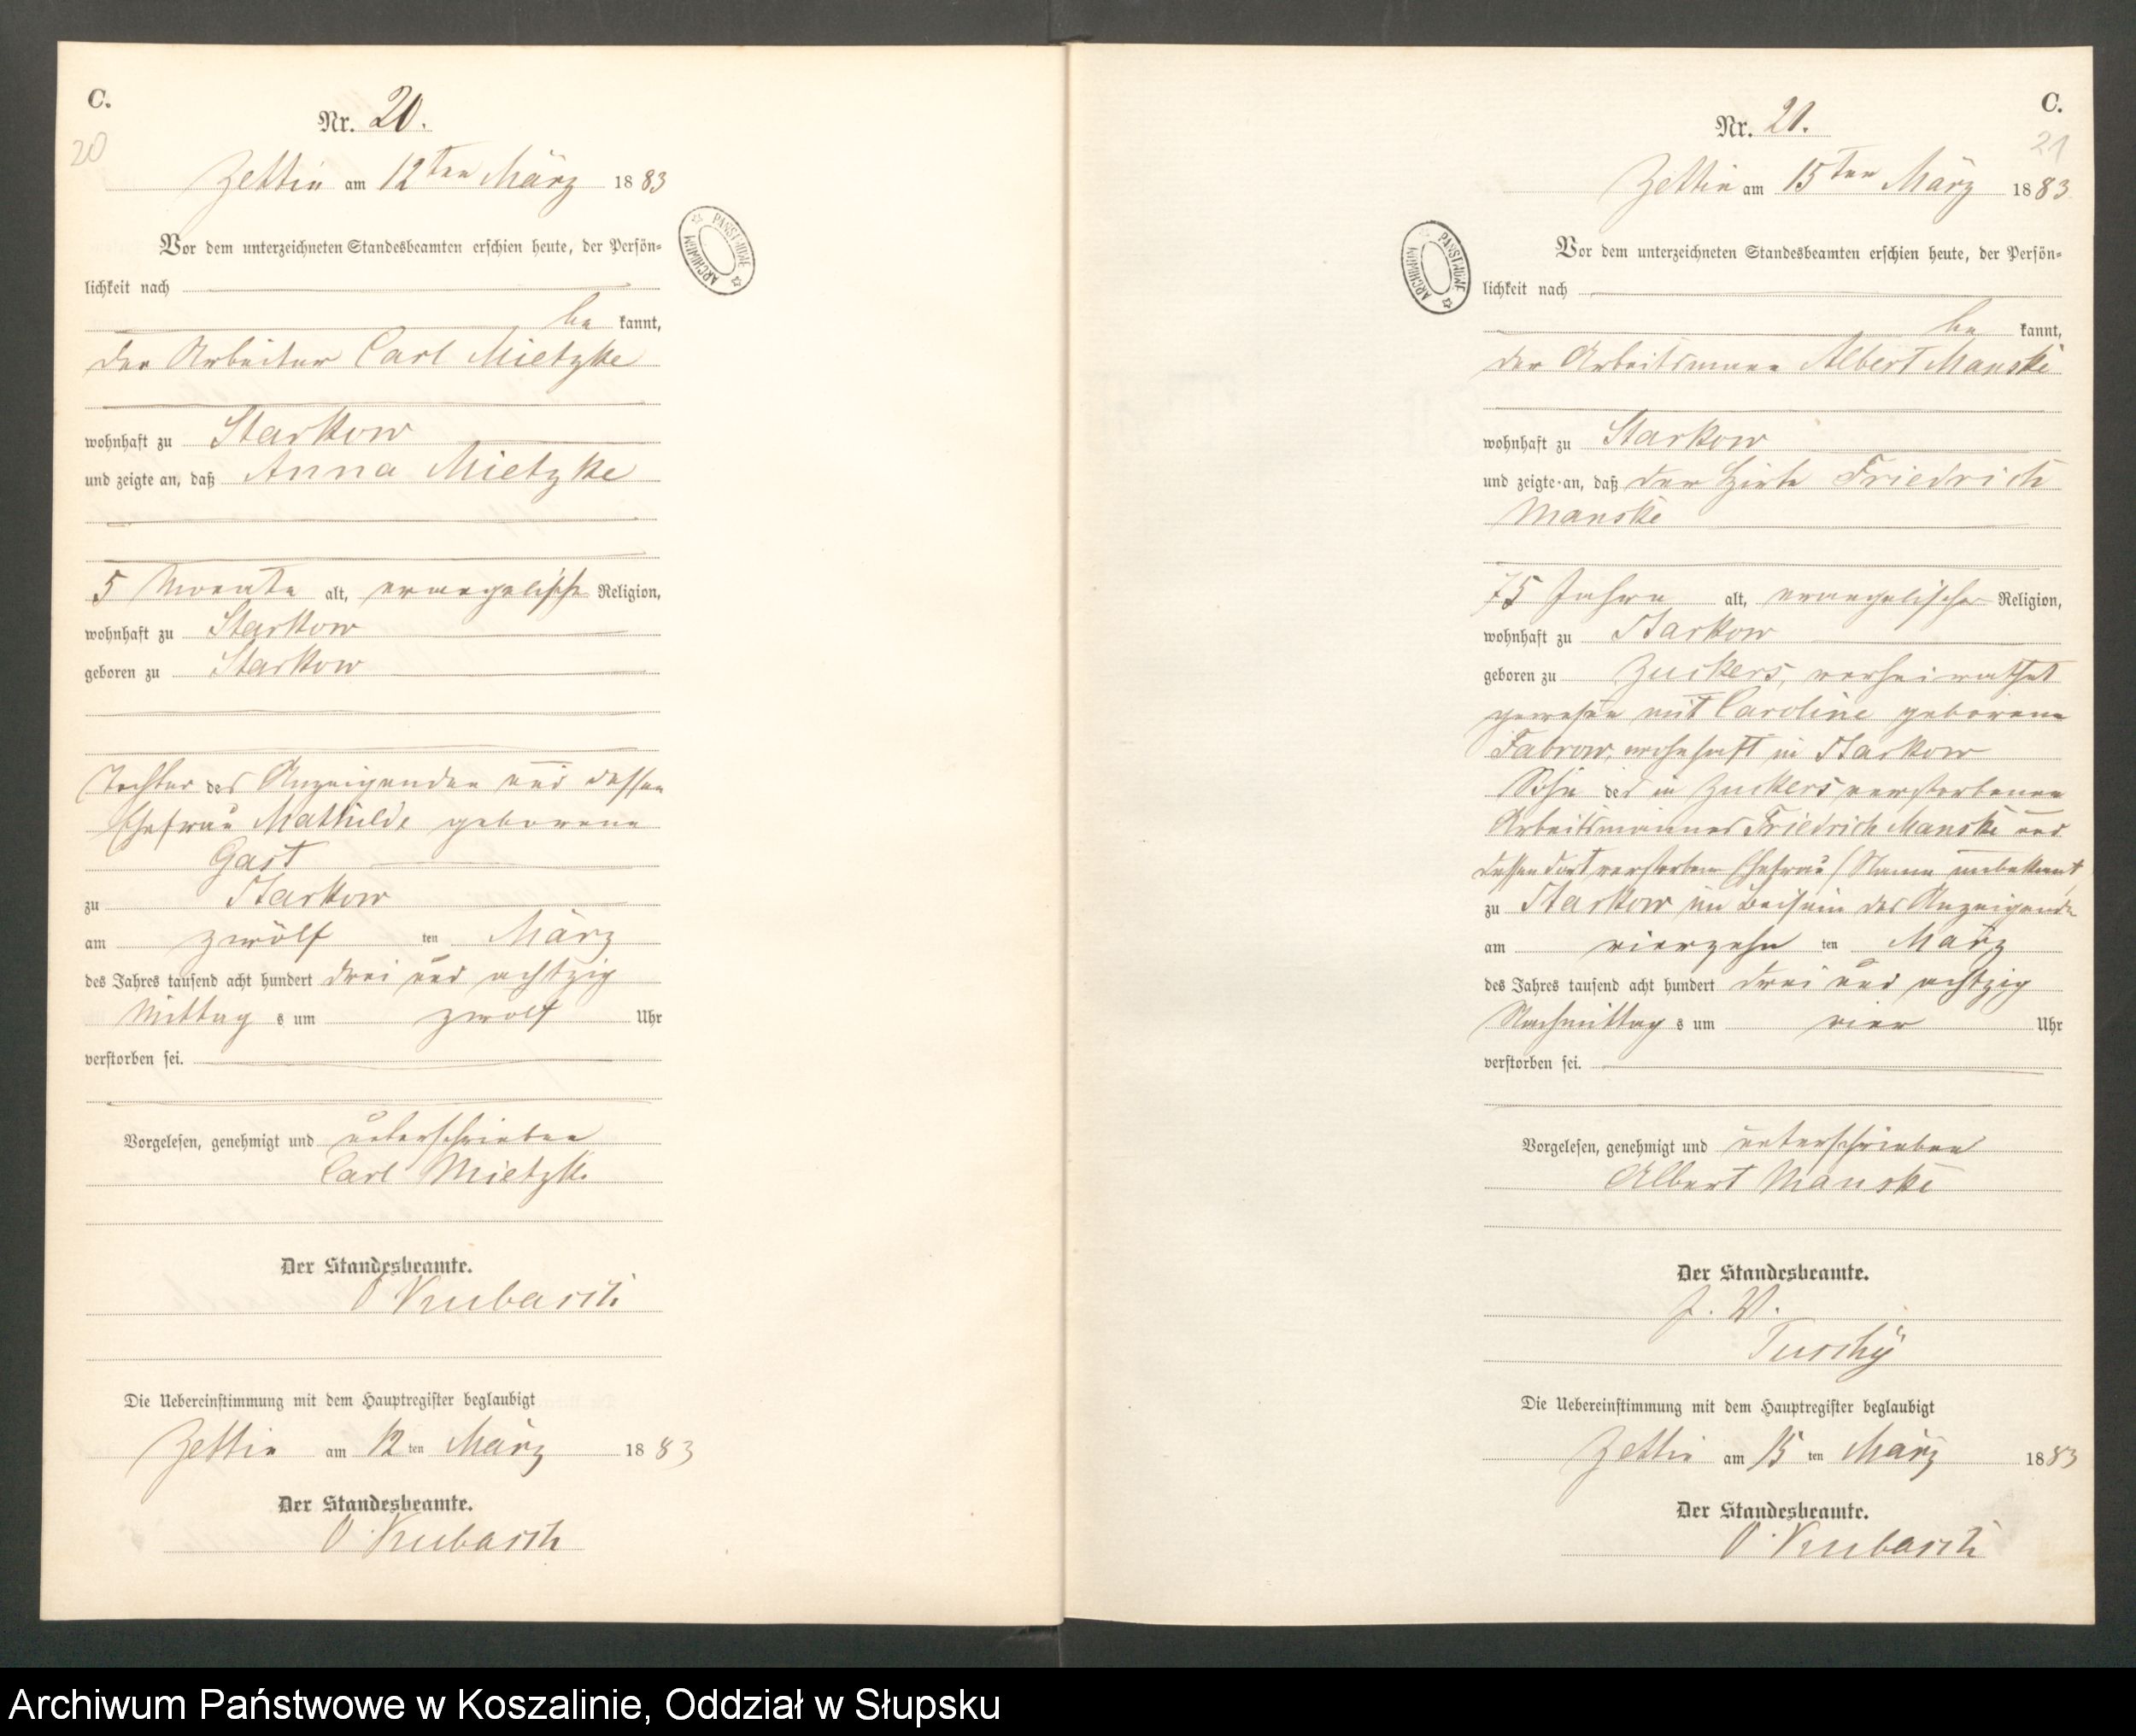 C.
20
Nr. 20.
Zettin am 12ten März 1883
Vor dem unterzeichneten Standesbeamten erschien heute, der Persön-
lichkeit nach
be kannt,
der Arbeiter Carl Mietzke
wohnhaft zu Starkow
und zeigte an, daß Anna Mietzke
5 Monate alt, evangelischer Religion,
wohnhaft zu Starkow
geboren zu Starkow
Tochter des Anzeigenden und dessen
Ehefrau Mathilde geborene
Gast
zu Starkow
am zwölf ten März
des Jahres tausend acht hundert drei und achtzig
Mittag s um zwölf Uhr
verstorben sei.
Vorgelesen, genehmigt und unterschrieben
Carl Mietzke
Der Standesbeamte.
O Kubasch
Die Uebereinstimmung mit dem Hauptregister beglaubigt
Zettin am 12 ten März 1883
Der Standesbeamte.
O. Kubasch
C.
21
Nr. 21.
Zettin am 15ten März 1883
Vor dem unterzeichneten Standesbeamten erschien heute, der Persön-
lichkeit nach
be kannt,
der Arbeitsmann Albert Manske
wohnhaft zu Starkow
und zeigte an, daß der Hirte Friedrich
Manske
75 Jahre alt, evangelischer Religion,
wohnhaft zu Starkow
geboren zu Zuckers, verheirathet
gewesen mit Caroline geborene
Fabrow, wohnhaft in Starkow
Sohn des in Zuckers verstorbenen
Arbeitsmannes Friedrich Manske und
dessen dort verstorbene Ehefrau (Name unbekannt)
zu Starkow im Beisein des Anzeigenden
am vierzehn ten März
des Jahres tausend acht hundert drei und achtzig
Nachmittag s um vier Uhr
verstorben sei.
Vorgelesen, genehmigt und unterschrieben
Albert Manske
Der Standesbeamte.
J. V.
Tuschy
Die Uebereinstimmung mit dem Hauptregister beglaubigt
Zettin am 15 ten März 1883
Der Standesbeamte.
O. Kubasch
ARCHIWUM PAŃSTWOWE
ARCHIWUM PAŃSTWOWE
Archiwum Państwowe w Koszalinie, Oddział w Słupsku